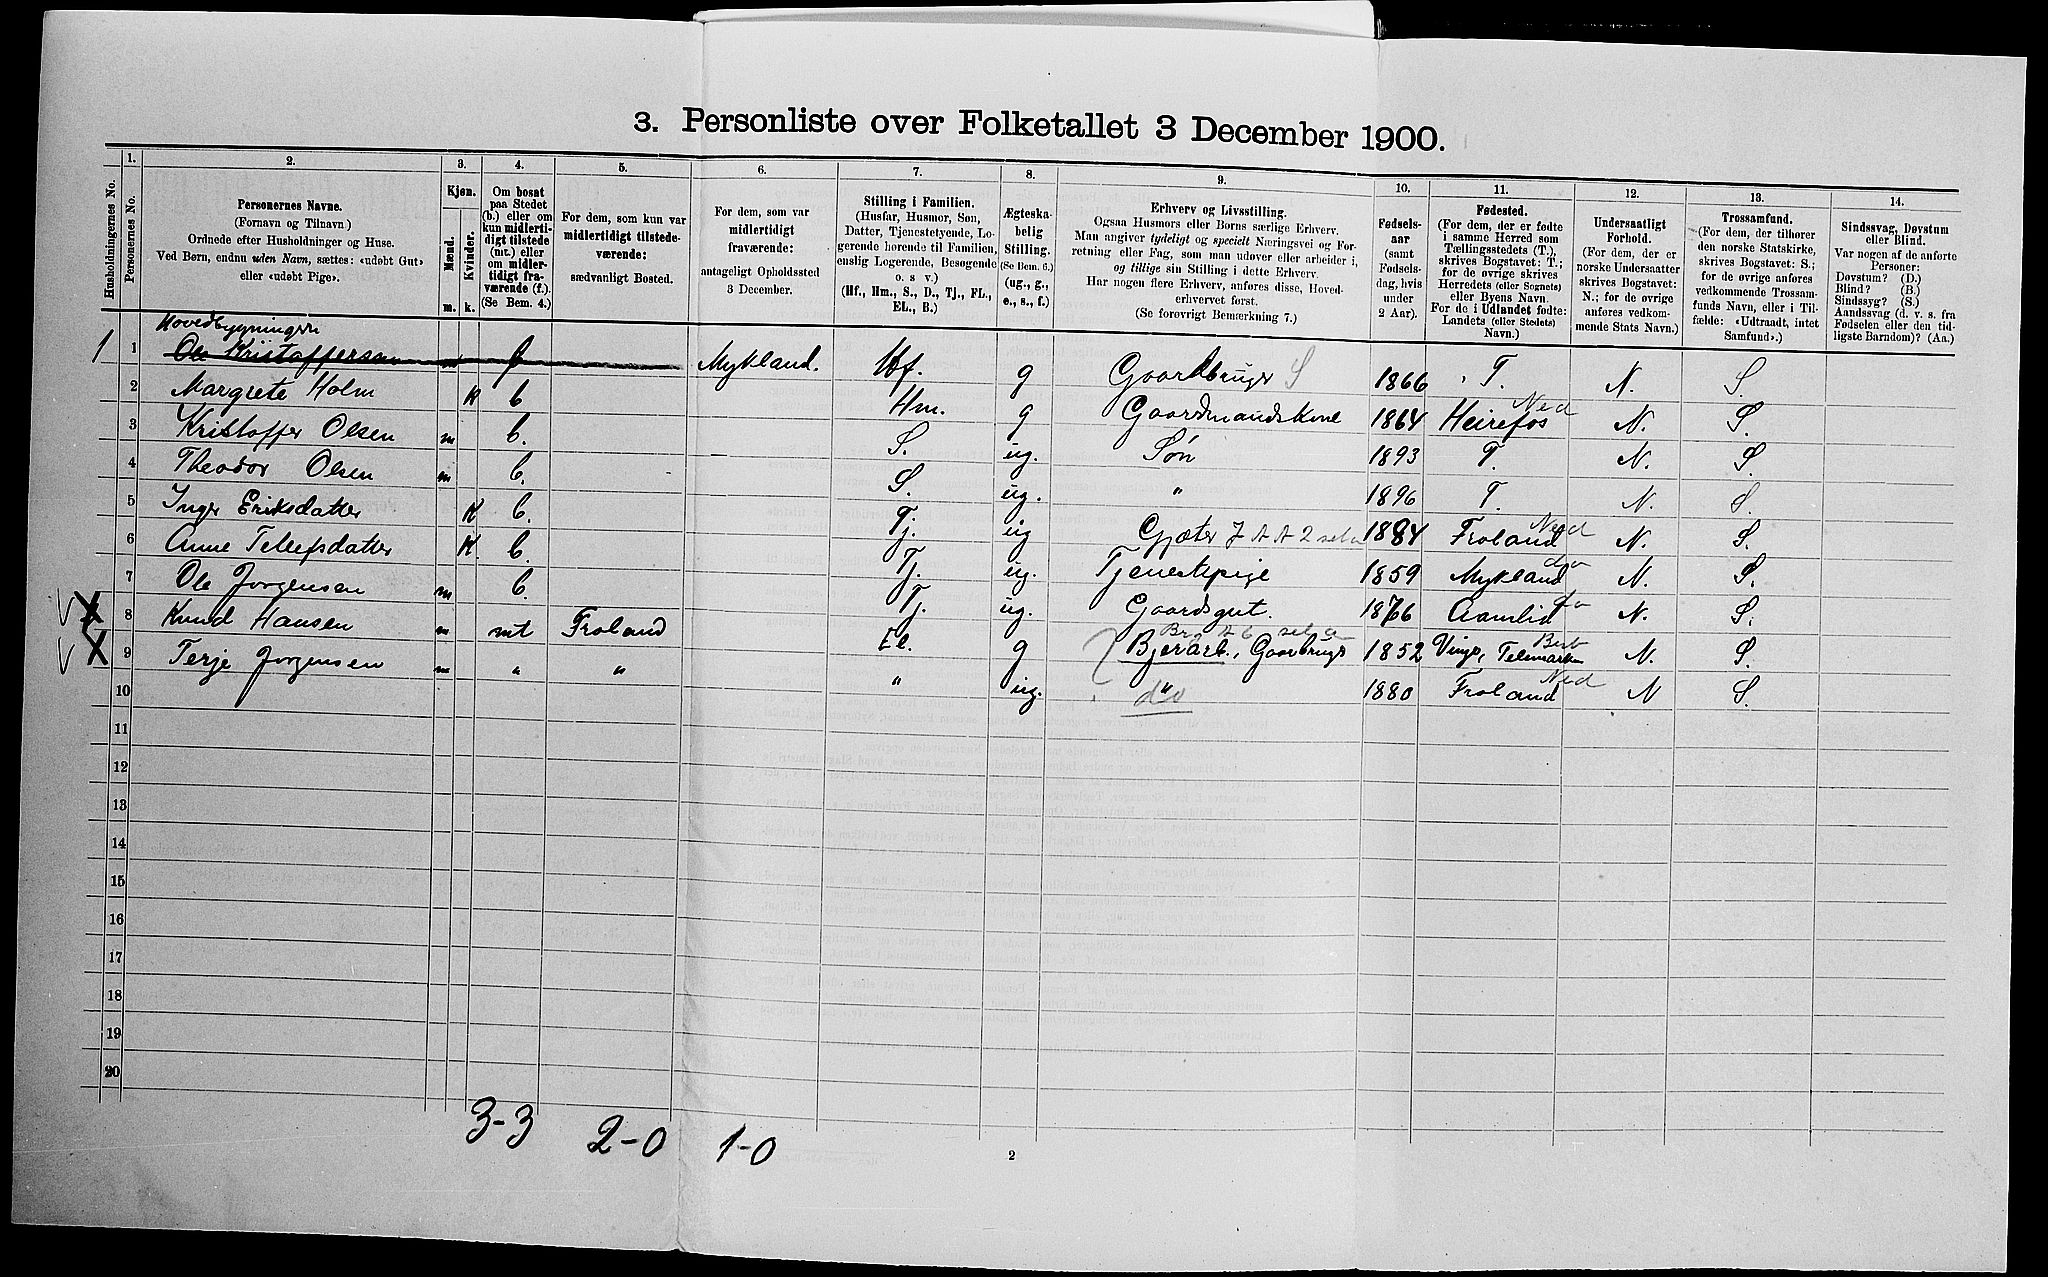 3. Personliste over Folketallet 3 December 1900.
Husholdningernes No.
1.
Personernes No.
2.
Personernes Navne.
(Fornavn og Tilnavn)
Ordnede efter Husholdninger og Huse.
Ved Børn, endnu uden Navn, sættes: «udøbt Gut»
eller «udøbt Pige».
3.
Kjøn.
Mænd.
Kvinder.
m. k.
4.
Om bosat
paa Stedet
(b.) eller om
kun midlerti-
digt tilstede
(mt.) eller
om midler-
tidigt fra-
værende (f.).
(Se Bem. 4.)
5.
For dem, som kun var
midlertidigt tilstede-
værende:
sædvanligt Bosted.
6.
For dem, som var
midlertidigt
fraværende:
antageligt Opholdssted
3 December.
7.
Stilling i Familien.
(Husfar, Husmor, Søn,
Datter, Tjenestetyende, Lo-
gerende hørende til Familien,
enslig Logerende, Besøgende
o. s v.)
(Hf., Hm., S., D., Tj., FL.,
EL., B.)
8.
Ægteska-
belig
Stilling.
(Se Bem. 6.)
(ug., g.,
e., s., f.)
9.
Erhverv og Livsstilling.
Ogsaa Husmors eller Børns særlige Erhverv.
Man angiver tydeligt og specielt Næringsvei og For-
retning eller Fag, som man udøver eller arbeider i,
og tillige sin Stilling i dette Erhverv.
Har nogen flere Erhverv, anføres disse, Hoved-
erhvervet først.
(Se forøvrigt Bemærkning 7.)
10.
Fødsels-
aar
(samt
Fødsels-
dag, hvis
under
2 Aar).
11.
Fødested.
(For dem, der er fødte
i samme Herred som
Tællingsstedets (T.),
skrives Bogstavet: T.;
for de øvrige skrives
Herredets (eller Sognets)
eller Byens Navn.
For de i Udlandet fødte:
Landets (eller Stedets)
Navn.)
12.
Undersaatligt
Forhold.
(For dem, der er
norske Undersaatter
skrives Bogstavet:
N.; for de øvrige
anføres vedkom-
mende Stats Navn.)
13.
Trossamfund.
(For dem, der tilhører
den norske Statskirke,
skrives Bogstavet: S.;
for de øvrige anføres
vedkommende Trossam-
funds Navn, eller i Til-
fælde: «Udtraadt, intet
Samfund».)
14.
Sindssvag, Døvstum
eller Blind.
Var nogen af de anførte
Personer:
Døvstum? (D.)
Blind? (B.)
Sindssyg? (S.)
Aandssvag (d. v. s. fra
Fødselen eller den tid-
ligste Barndom)? (Aa.)
Hovedbygningen
1 1 Ole Kristoffersen m f Mykland. Hf. g Gaardbruger S 1866 T. N. S.
2 Margrete Holm K b Hm. g Gaardmandskone 1864 Heirefos Ned N. S.
3 Kristoffer Olsen m b. S. ug. Søn 1893 T. N. S.
4 Theodor Olsen m b. S. ug. " 1896 T. N. S.
5 Inger Eriksdatter K b. Tj. ug Gjæter 1884 Froland Ned N. S.
6 Anne Tellefsdatter K. b. Tj. ug. Tjenestepige 1859 Mykland do N. S.
7 Ole Jorgensen m b. Tj. ug. Gaardsgut. 1876 Aamlid do N. S.
8 Knud Hansen m mt Froland El. g Bjerarb., Gaardbrug 1852 Vinje, Telemarken N. S.
9 Terje Jorgensen m " " " ug. do 1880 Froland Ned N S.
10
11
12
13
14
15
16
17
18
19
20
3-3 2-0 1-0
2